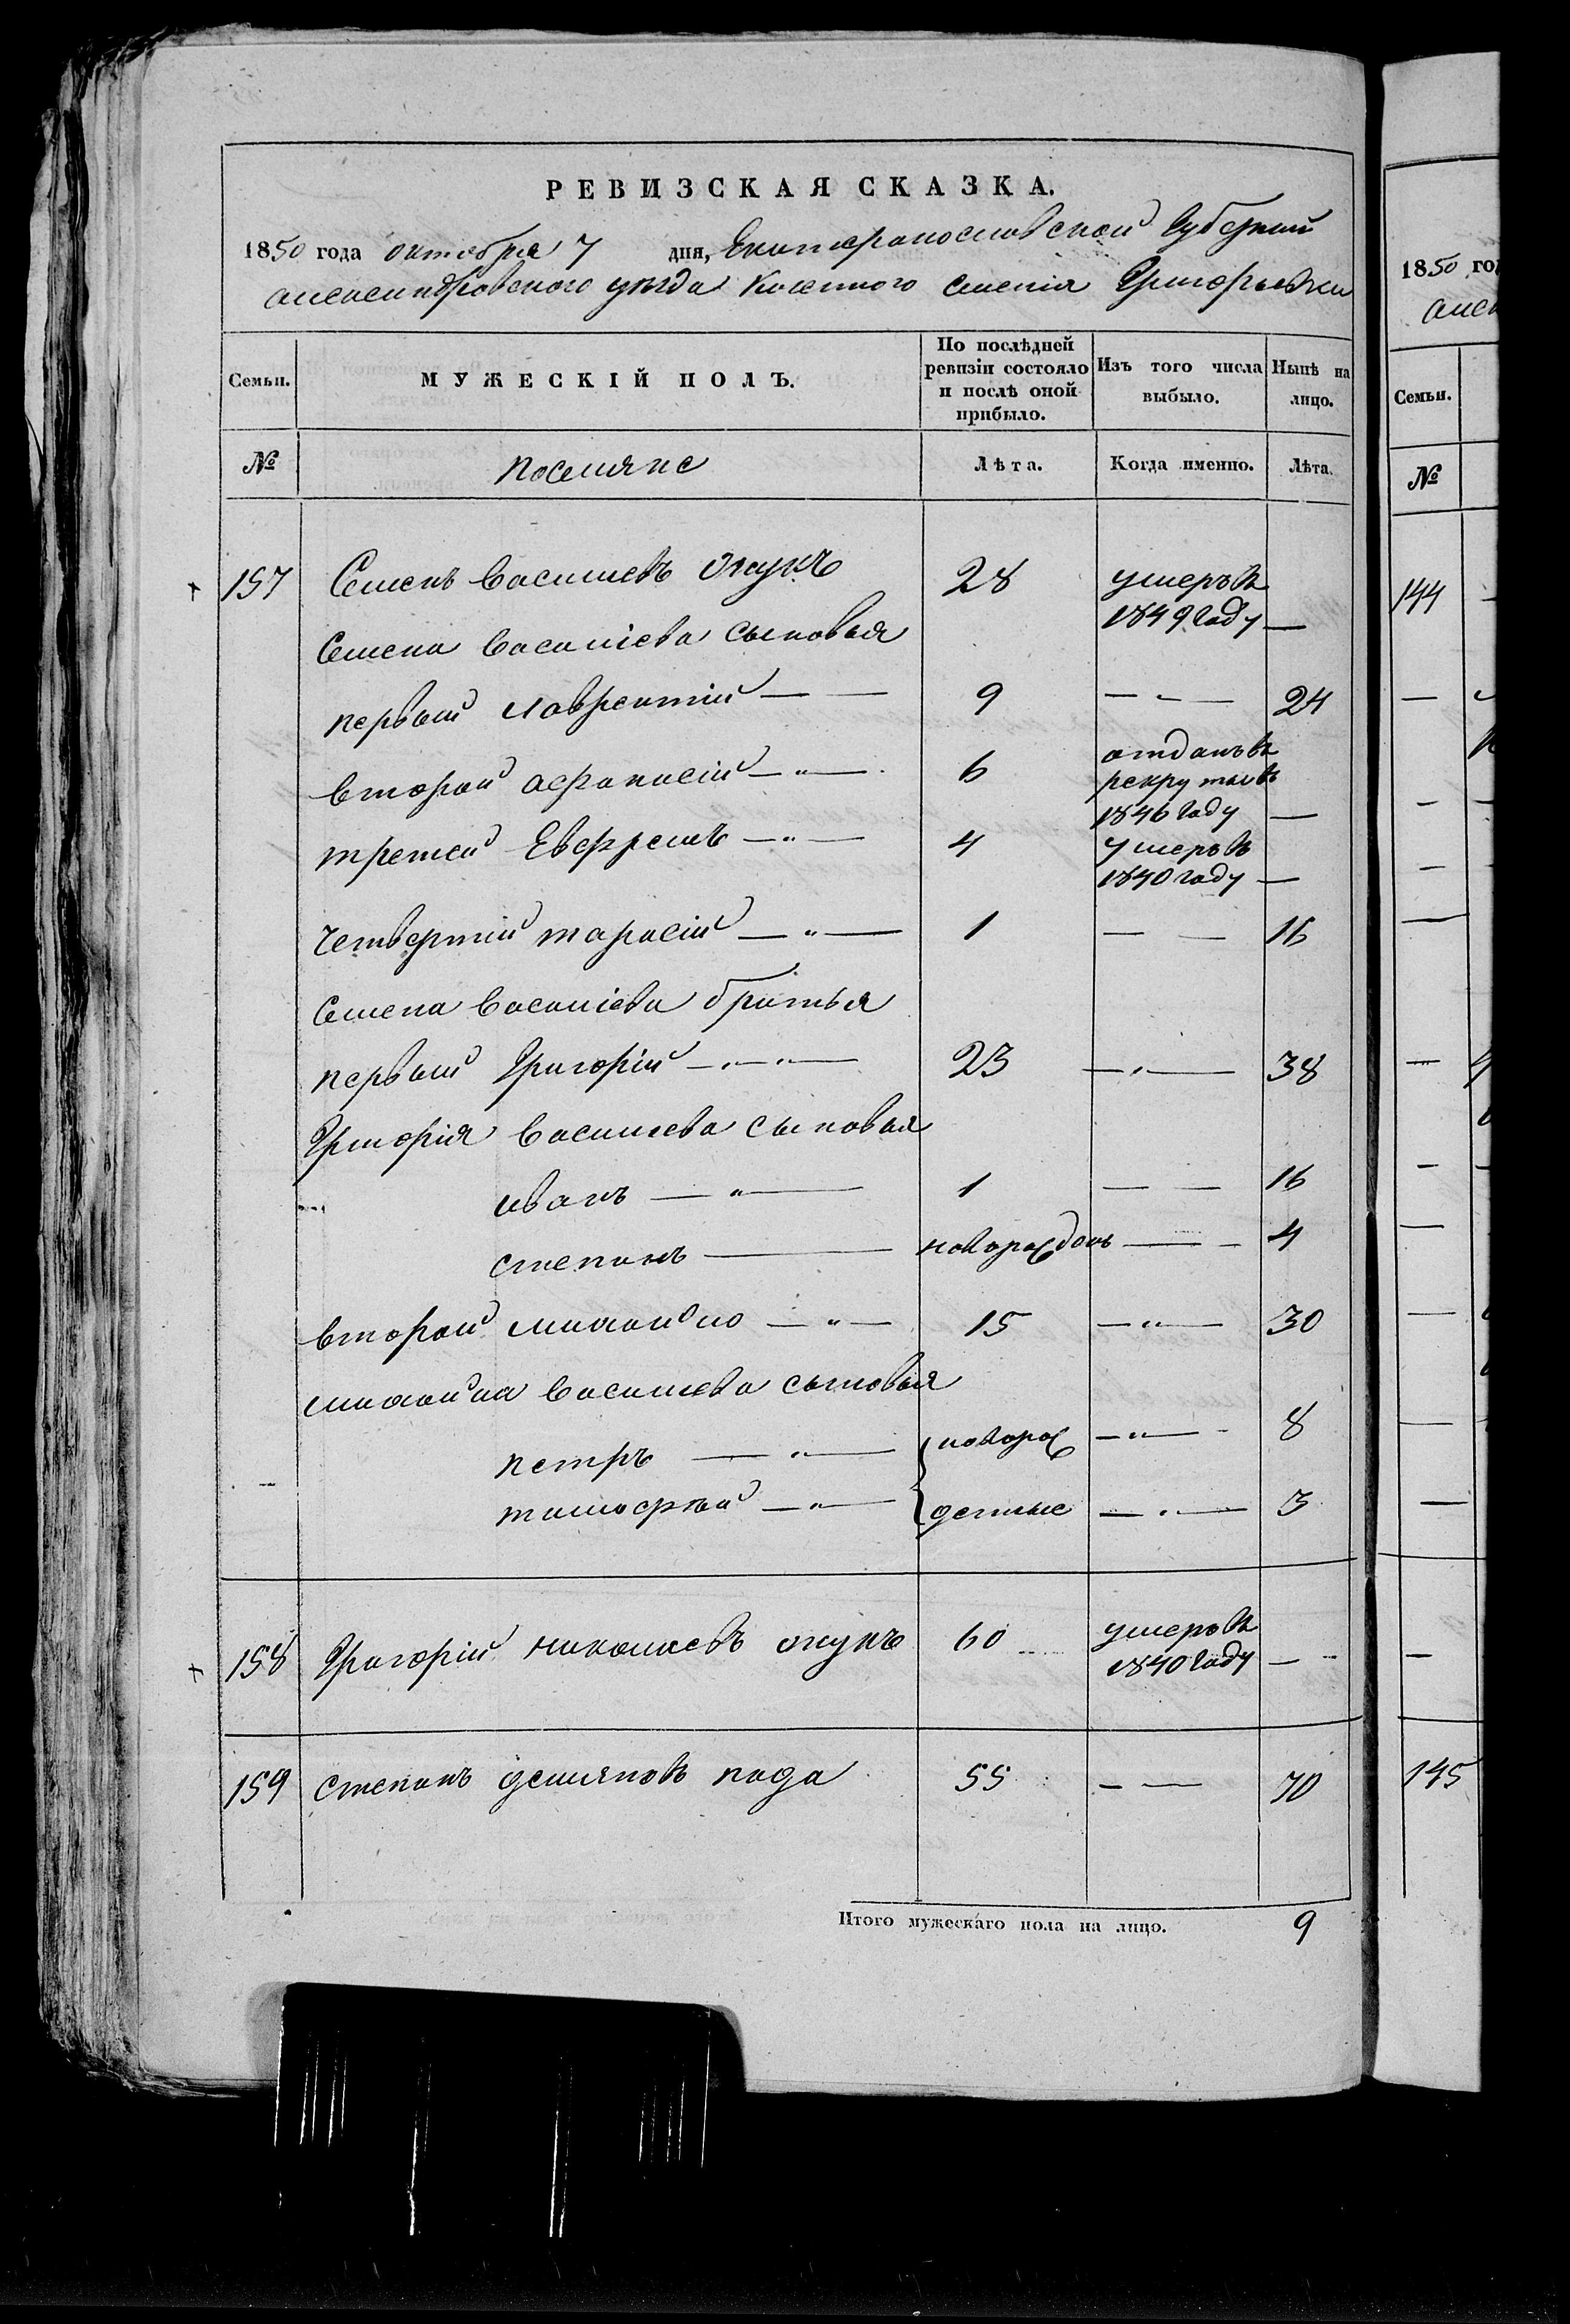 РЕВИЗСКАЯ СКАЗКА.
1850 года октебря 7 дня, Екатеринославской Губернии
александровского уезда Казенного селенія Григорьевки
Семьи. МУЖЕСКІЙ ПОЛЪ. По послѣдней ревизіи состояло и послѣ оной прибыло. Изъ того числа выбыло. Нынѣ на лицо.
№ поселяне Лѣта. Когда именно. Лѣта.
157 Семенъ Василиевъ 28 умеръ в
1849 году —
Семена Василіева сыновья
первый лаврентий — — 9 — " — 24
второй афанасій — " — 6 отданъ в
рекруты в
1846 году —
третей Евфремъ — " — 4 умеръ в
1840 году —
Четвертій тарасій — " — 1 — — 16
Семена Василіева братья
первый Григорій — " — " — 23 — " — 38
Григорія Василиева сыновья
иванъ — " — 1 — — 16
степанъ — новорожденъ — — 4
второй михайло — " — 15 — " — 30
михайла Василиева сыновья
петръ — " — новорож — " — 8
тимофей — " — денные — " — 3
158 Григорій николаевъ 60 умеръ в
1840 году —
159 степанъ демяновъ 55 — — 70
Итого мужескаго пола на лицо. 9
1850 год
алек
Семьи.
№
144
145